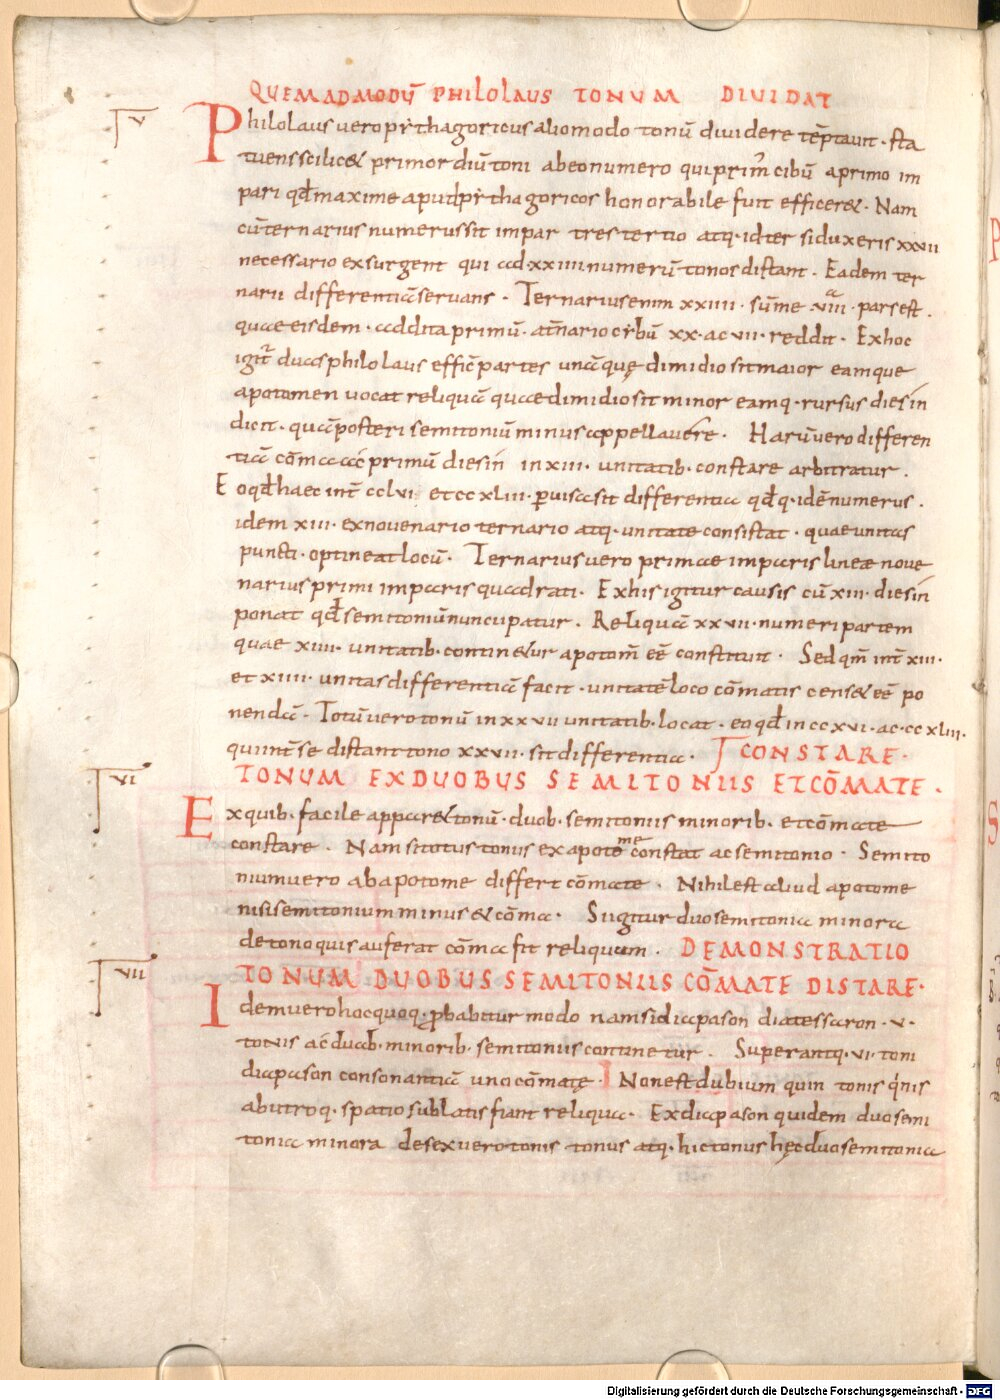 QUEMADMODŪ PHILOLAUS TONUM DIVIDAT
V
Philolaus vero pythagoricus alio modo tonū dividere tēptavit · sta
tuens scilic& primordiū toni ab eo numero qui primū cibū a primo im
pari qđ maxime apud pythagoricos honorabile fuit efficer& · Nam
cū ternarius numerus sit impar tres tertio atq · id ter si duxeris xxvii
necessario exsurgent qui ad · xxiiii numerū tonos distant · Eadem ter
narii differentiā servans · Ternarius enim xxiiii · sūme viii · pars est ·
quae eisdem · addita primū · at̄nario cybū xx · ac vii · reddit · Ex hoc
igit̄ duas philolaus effic̄ partes unā que dimidio sit maior eamque
apotomen vocat reliquā quae dimidio sit minor eamq · rursus diesin
dicit · quā posteri semitoniū minus appellavere · Harū vero differen
tiā cōma ac primū diesin in xiii · unitatib · constare arbitratur ·
Eo qđ haec int̄ cclvi et ccxliii · pervisa sit differentia qđ q · idē numerus ·
idem xiii · ex novenario ternario atq · unitate consistat · quae unitas
puncti · optineat locū · Ternarius vero primae imparis lineæ nove
narius primi imparis quadrati · Ex his igitur causis cū xiii · diesin
ponat qđ semitoniū nuncupatur · Reliquā xxvii · numeri partem
quae xiiii · unitatib · contin&ur apotom̄ eē constituit · Sed qm̄ int̄ xiii ·
et xiiii · unitas differentiā facit · unitatē loco cōmatis cens& eē po
nendā · Totū vero tonū in xxvii unitatib · locat · eo qđ in ccxvi · ac · ccxliii ·
qui int̄ se distant tono xxvii · sit differentia · CONSTARE ·
VI
TONUM EX DUOBUS SEMITONIIS ET CŌMATE ·
Ex quib · facile appar& tonū · duob · semitoniis minorib · et cōmate
constare · Nam si totus tonus ex apotome constat ac semitonio · Semito
nium vero ab apotome differt cōmate · Nihil est aliud apotome
nisi semitonium minus & cōma · Si igitur duo semitonia minora
de tono quis auferat cōma fit reliquum · DEMONSTRATIO
VII
TONUM DUOBUS SEMITONIIS CŌMATE DISTARE ·
Idem vero hoc quoq · ꝓbabitur modo nam si diapason diatessaron · v ·
tonis ac duab · minorib · semitoniis continetur · Superantq · vi · toni
diapason consonantiā uno cōmate · Non est dubium quin tonis qinis
ab utroq · spatio sublatis fiant reliqua · Ex diapason quidem duo semi
tonia minora de sex vero tonis tonus atq · hic tonus hęc duo semitonia
Digitalisierung gefördert durch die Deutsche Forschungsgemeinschaft - DFG